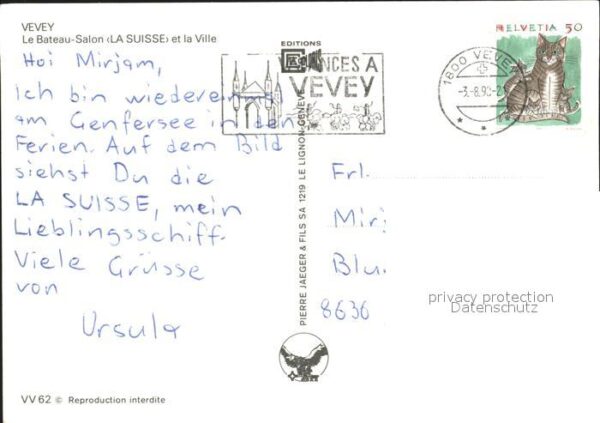 VEVEY
Le Bateau-Salon ‹LA SUISSE› et la Ville
Hoi Mirjam,
Ich bin wiedereinmal
am Genfersee in den
Ferien. Auf dem Bild
siehst Du die
LA SUISSE, mein
Lieblingsschiff.
Viele Grüsse
von
Ursula
VV 62 © Reproduction interdite
EDITIONS
PIERRE JAEGER & FILS SA 1219 LE LIGNON-GENEVE
VACANCES A
VEVEY
1800 VEVEY
-3.-8.90-2
HELVETIA 50
Frl.
Mirj
Blu
8636
privacy protection
Datenschutz